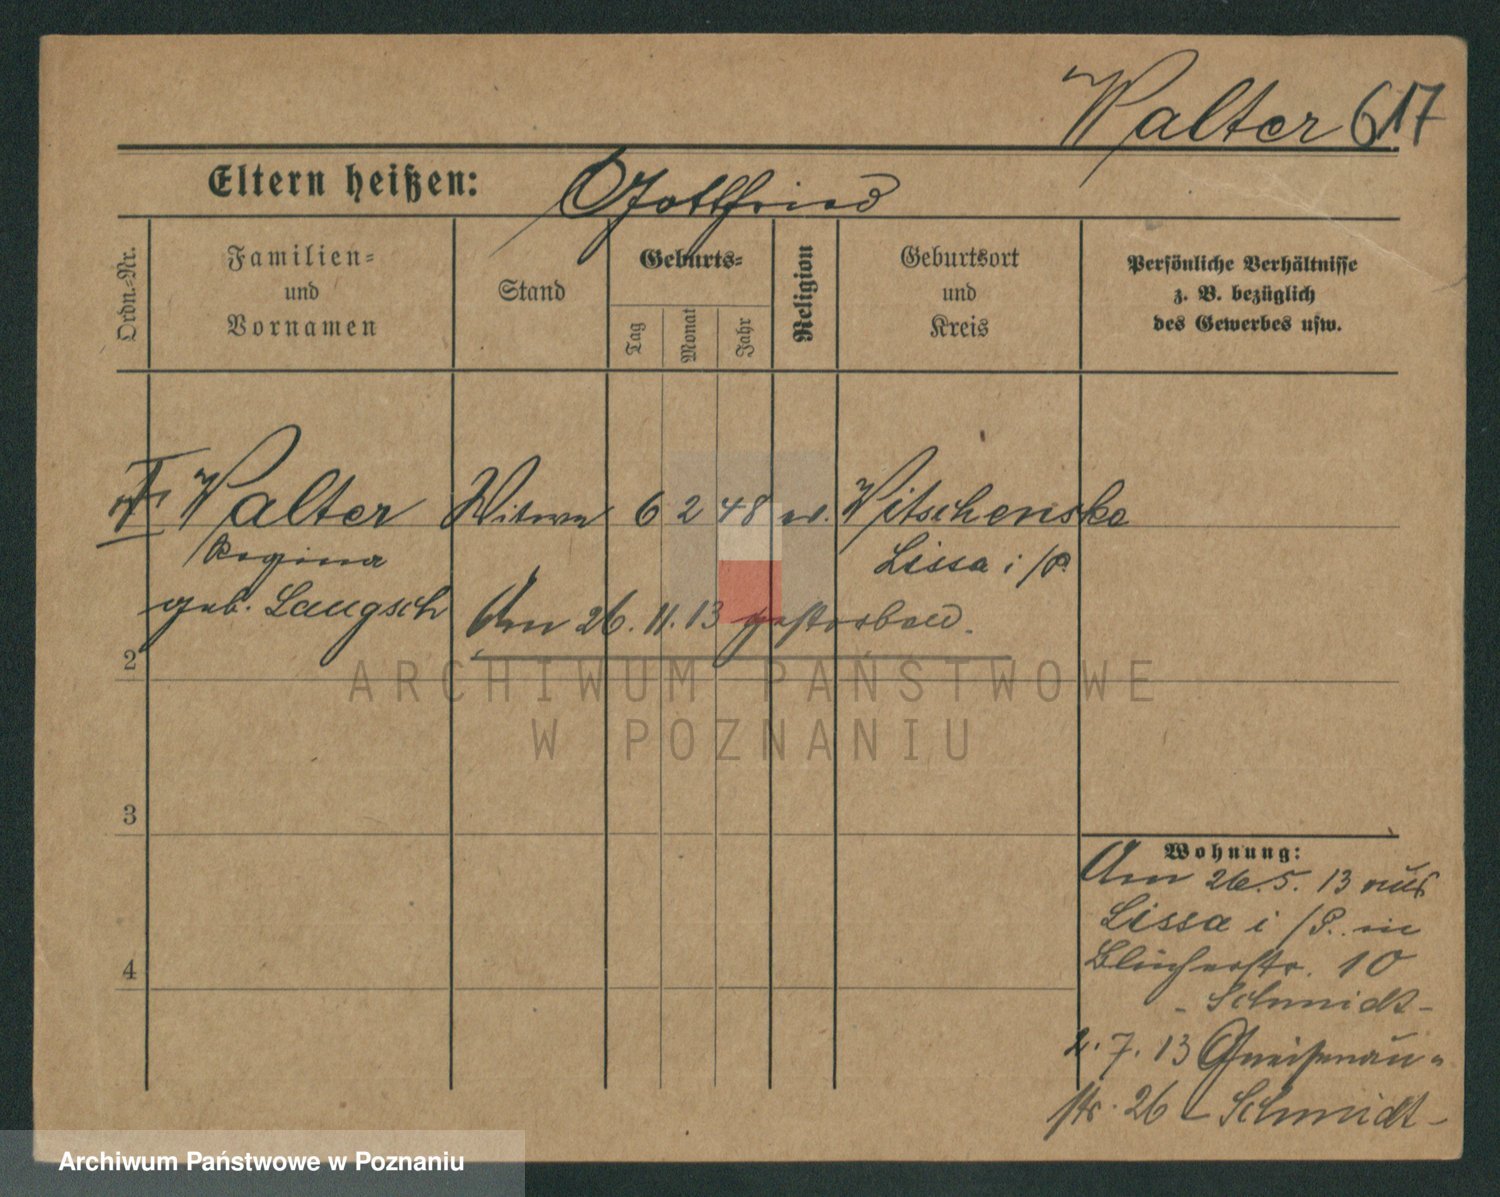 Walter 617
Eltern heißen: Gottfried
Ordn.-Nr.
Familien- und Vornamen
Stand
Geburts-
Tag
Monat
Jahr
Religion
Geburtsort und Kreis
Persönliche Verhältnisse
z. B. bezüglich
des Gewerbes usw.
Walter Witwe 6 2 48 ev. Witschenske
Regina Lissa i/P.
geb. Langsch Am 26. 11. 13 gestorben.
2
3
4
Wohnung:
Am 26. 5. 13 aus
Lissa i/P. in
Blücherstr. 10
- Schmidt -
2. 7. 13 Gneisenau-
str. 26 - Schmidt -
ARCHIWUM PAŃSTWOWE
W POZNANIU
Archiwum Państwowe w Poznaniu